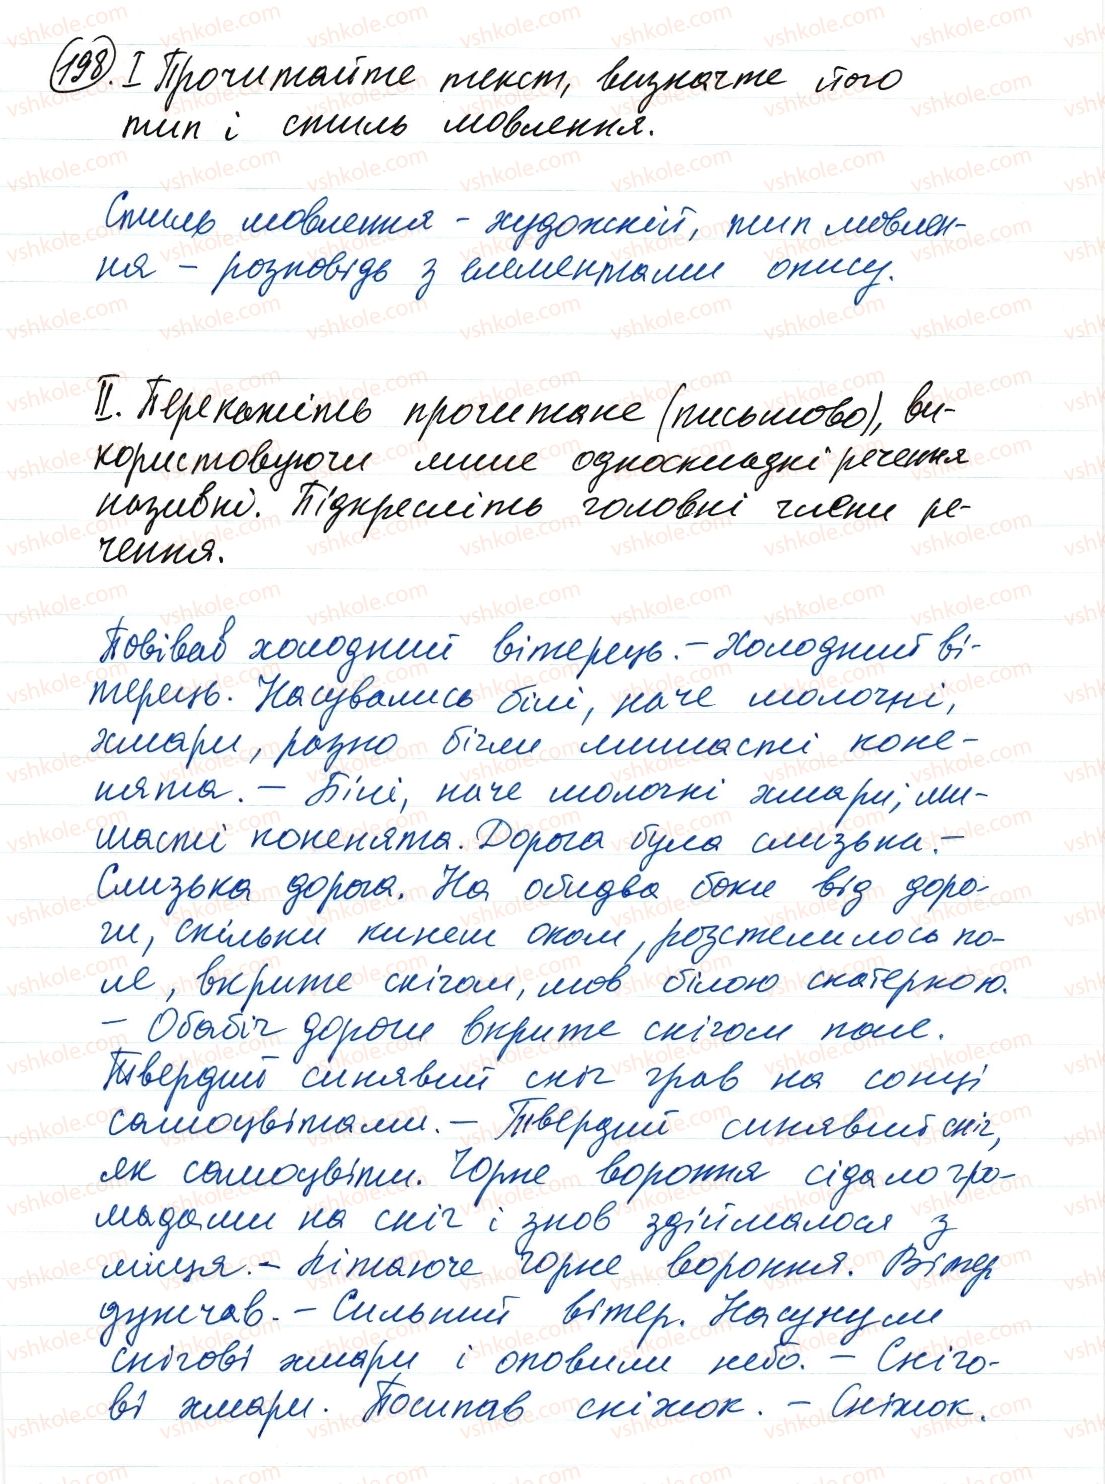 198. I Прочитайте текст, визначте його
тип і стиль мовлення.
Стиль мовлення - художній, тип мовлен-
ня - розповідь з елементами опису.
II. Перекажіть прочитане (письмово), ви-
користовуючи лише односкладні речення
називні. Підкресліть головні члени ре-
чення.
Повівав холодний вітерець. - Холодний ві-
терець. Насувались білі, наче молочні,
хмари, рахно бігли лишасті коне-
нята. - Білі, наче молочні хмари, ли-
шасті коненята. Дорога була слизька. -
Слизька дорога. На обидва боки від доро-
ги, скільки кинеш оком, розстелилось по-
ле, вкрите снігом, мов білою скатеркою.
- Обабіч дороги вкрите снігом поле.
Твердий синявий сніг грав на сонці
самоцвітами. - Твердий синявий сніг,
як самоцвіти. Чорне вороння сідало гро-
мадами на сніг і знов здіймалося з
місця. - Літаюче чорне вороння. Вітер
дужчав. - Сильний вітер. Насунули
снігові хмари і оповили небо. - Сніго-
ві хмари. Посипав сніжок. - Сніжок.
vshkole.com